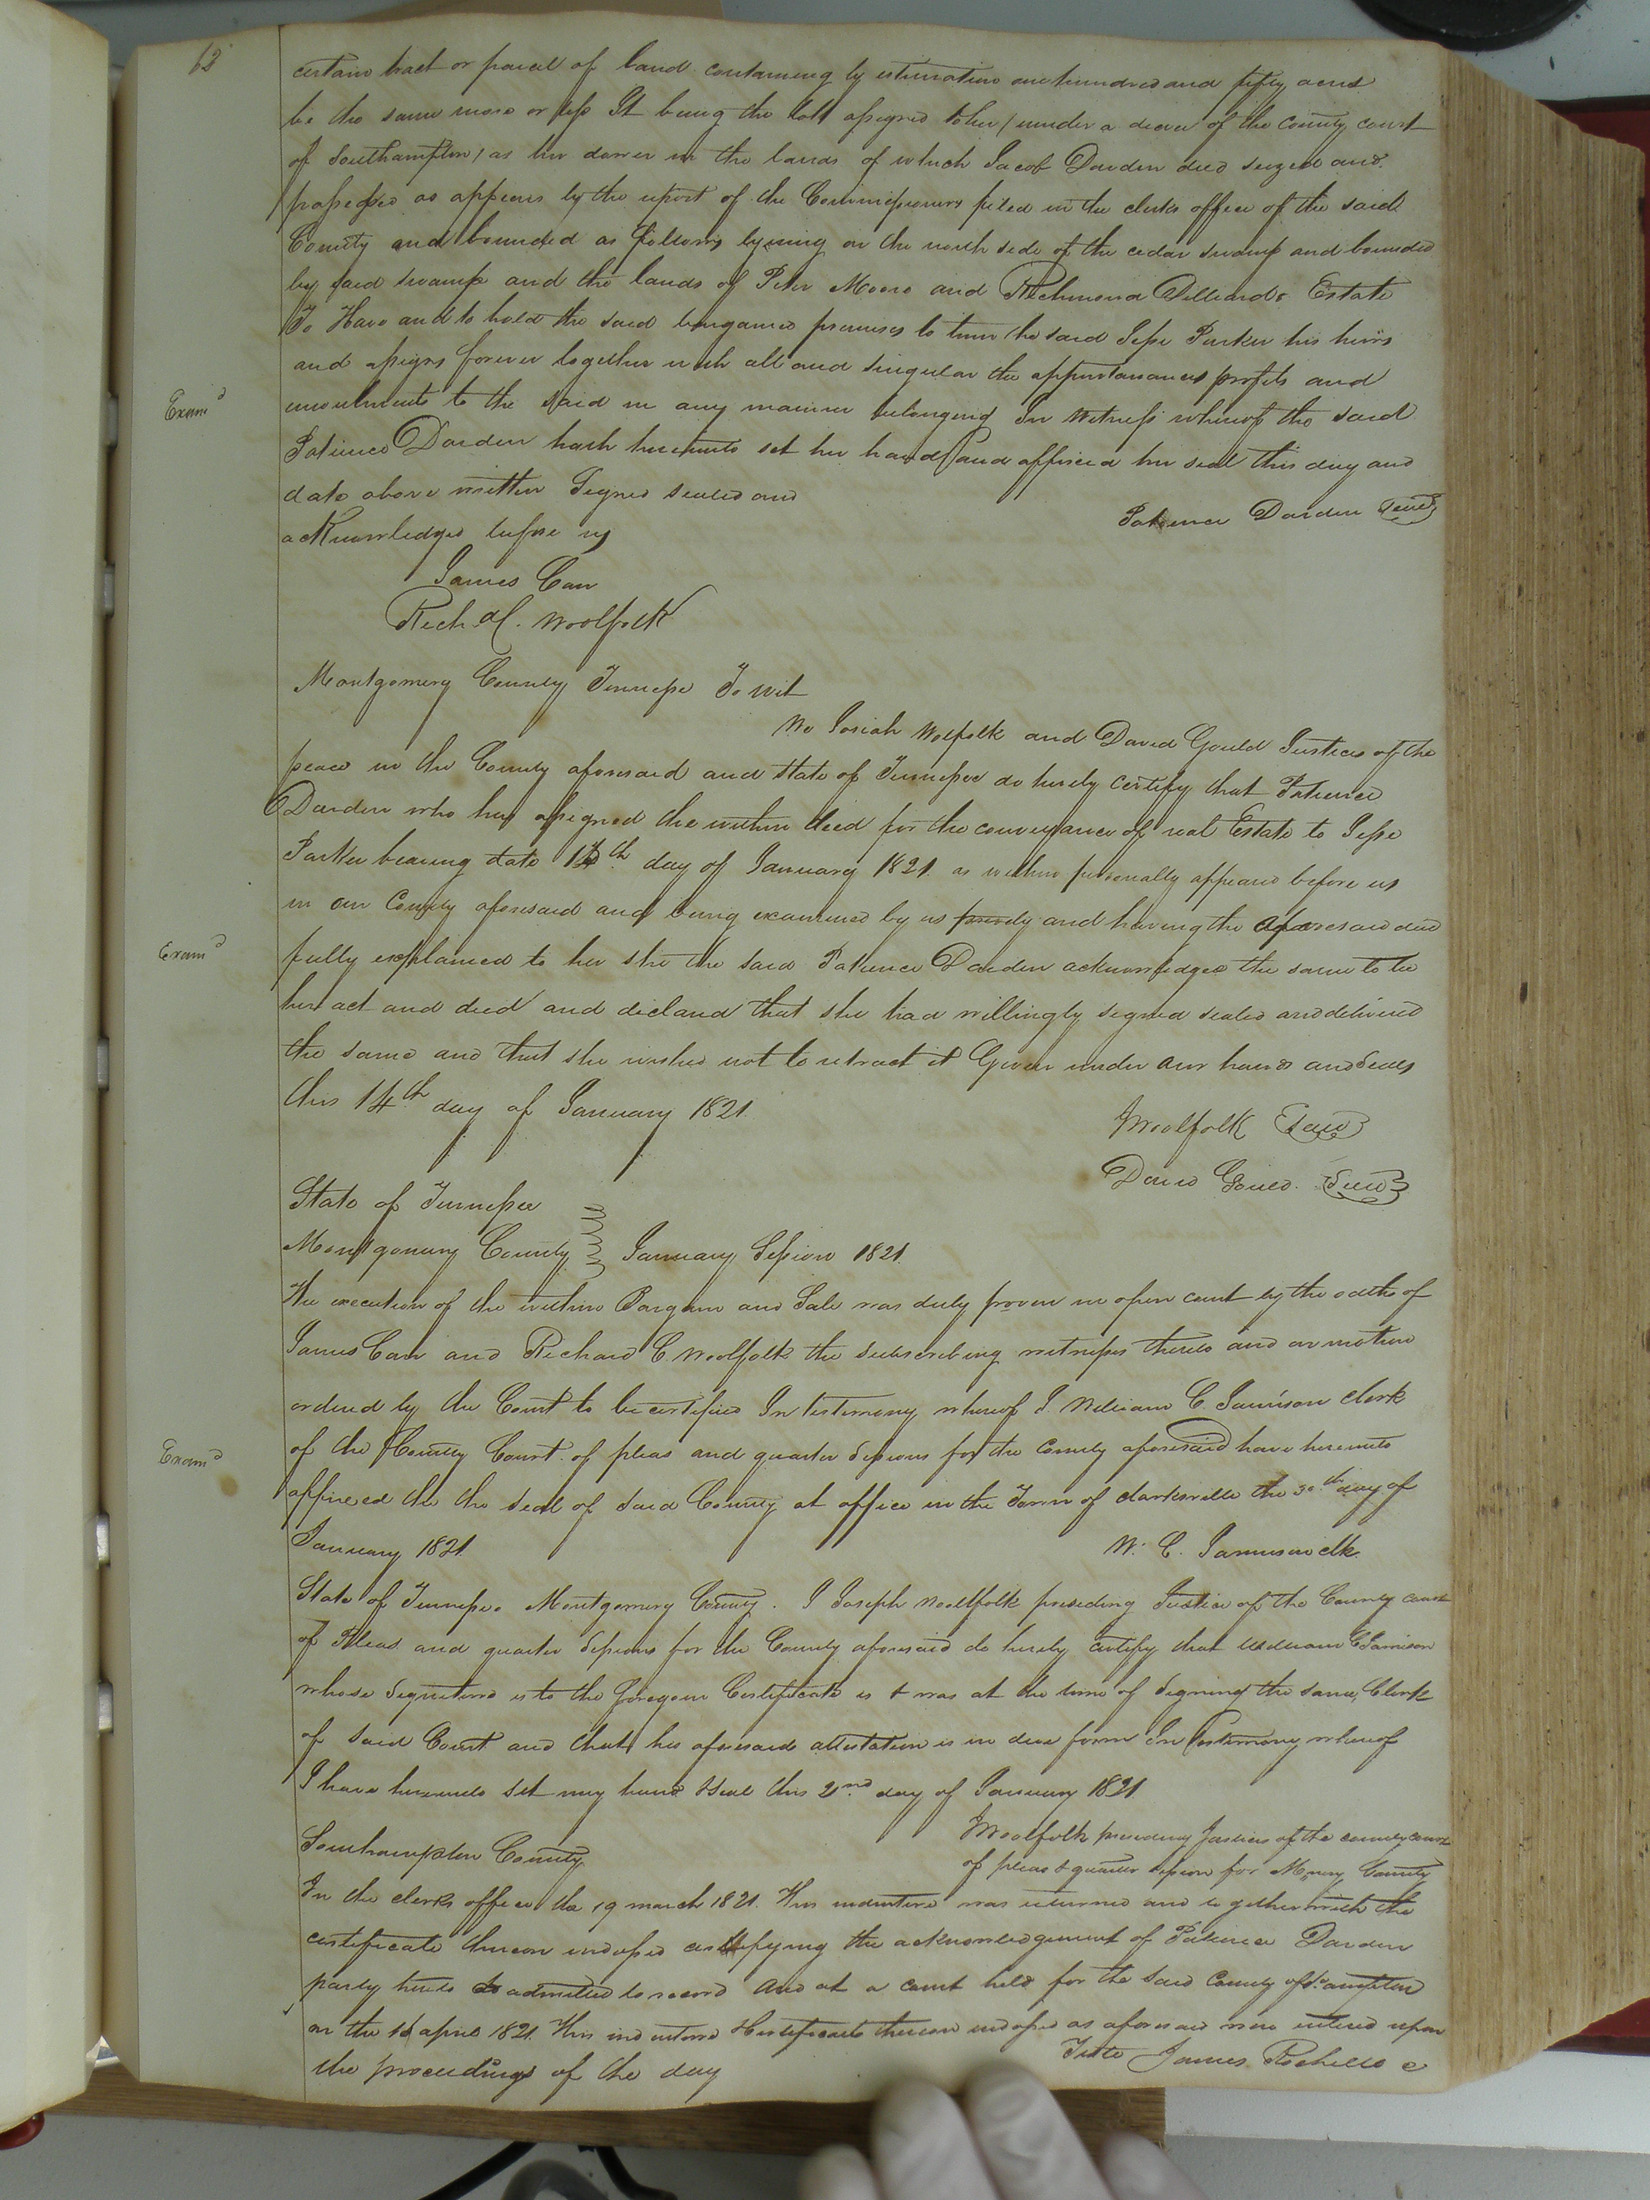 62
certain tract or parcel of land containing by estimation one hundred and fifty acres
be the same more or less It being the lott assigned to her (under a decree of the County court
of Southampton) as her dower in the lands of which Jacob Darden died seized and
possessed as appears by the report of the Commissioners filed in the clerks office of the said
County and bounded as follows lying on the north side of the cedar swamp and bounded
by said swamp and the lands of Peter Moore and Richmond Estate
To Have and to hold the said bargained premises to him the said Jesse Parker his heirs
and assigns forever together with all and singular the appurtanances profits and
Exam^d
emoluments to the said in any manner belonging In Witness whereof the said
Patience Darden hath hereunto set her hand and affixed her seal this day and
date above written Signed sealed and
Patience Darden Seal
acknowledged before us
James Carr
Rich. C. Woolfolk
Montgomery County Tennessee To wit
We Josiah Wolfolk and David Gould Justices of the
peace in the County aforesaid and State of Tennessee do hereby certify that Patience
Darden who has assigned the within deed for the conveyance of real Estate to Jesse
Parker bearing date 14th day of January 1821 as within personally appeard before us
in our County aforesaid and being examined by us privily and having the aforesaid deed
Exam^d
fully explained to her she the said Patience Darden acknowledged the same to be
her act and deed and declared that she had willingly signed sealed and delivered
the same and that she wishes not to retract it Given under our hands and Seals
this 14th day of January 1821
J Woolfolk Seal
David Gould. Seal
State of Tennessee
Montgomery County January Session 1821
The execution of the within Bargain and Sale was duly proven in open court by the oaths of
James Carr and Richard C Woolfolk the subscribing witnesses thereto and on motion
ordered by the Court to be certified In testimony whereof I William C. Jamison Clerk
Exam^d
of the County Court of pleas and quarter Sessions for the County aforesaid have hereunto
affixed the the Seal of said County at office in the Town of Clarksville the 30th day of
January 1821
W. C. Jamison clk.
State of Tennessee Montgomery County. I Joseph Woolfolk presiding Justice of the County court
of Pleas and quarter Sessions for the County aforesaid do hereby certify that William C Jamison
whose signature is to the foregoin Certificate is & was at the time of signing the same, Clerk
of said Court and that his aforesaid attestation is in due form In testimony whereof
I have hereunto set my hand & seal this 2nd day of January 1821
J Woolfolk presiding Justice of the county court
of pleas & quarter session for Mgmy County
Southampton County
In the clerks office the 19 march 1821. This indenture was returned and together with the
certificate thereon indorsed certifying the acknowledgement of Patience Darden
party hereto is admitted to record And at a court held for the said County of So: ampton
on the 16 april 1821. This indenture & certificate thereon indorsed as aforesaid were entered upon
the proceedings of the day
Teste James Rochelle c